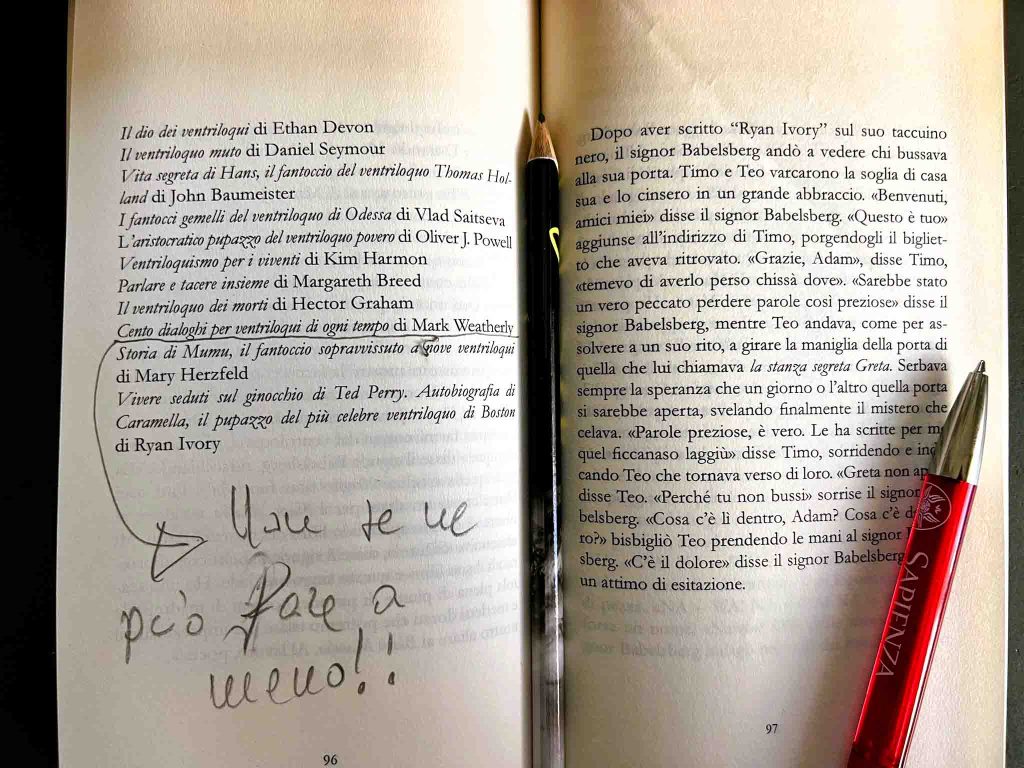 Il dio dei ventriloqui di Ethan Devon
Il ventriloquo muto di Daniel Seymour
Vita segreta di Hans, il fantoccio del ventriloquo Thomas Hol-
land di John Baumeister
I fantocci gemelli del ventriloquo di Odessa di Vlad Saitseva
L'aristocratico pupazzo del ventriloquo povero di Oliver J. Powell
Ventriloquismo per i viventi di Kim Harmon
Parlare e tacere insieme di Margareth Breed
Il ventriloquo dei morti di Hector Graham
Cento dialoghi per ventriloqui di ogni tempo di Mark Weatherly
Storia di Mumu, il fantoccio sopravvissuto a nove ventriloqui
di Mary Herzfeld
Vivere seduti sul ginocchio di Ted Perry. Autobiografia di
Caramella, il pupazzo del più celebre ventriloquo di Boston
di Ryan Ivory
Non se ne
può fare a
meno!!
96
Dopo aver scritto “Ryan Ivory” sul suo taccuino
nero, il signor Babelsberg andò a vedere chi bussava
alla sua porta. Timo e Teo varcarono la soglia di casa
sua e lo cinsero in un grande abbraccio. «Benvenuti,
amici miei» disse il signor Babelsberg. «Questo è tuo»
aggiunse all'indirizzo di Timo, porgendogli il bigliet-
to che aveva ritrovato. «Grazie, Adam», disse Timo,
«temevo di averlo perso chissà dove». «Sarebbe stato
un vero peccato perdere parole così preziose» disse il
signor Babelsberg, mentre Teo andava, come per as-
solvere a un suo rito, a girare la maniglia della porta di
quella che lui chiamava la stanza segreta Greta. Serbava
sempre la speranza che un giorno o l'altro quella porta
si sarebbe aperta, svelando finalmente il mistero che
celava. «Parole preziose, è vero. Le ha scritte per me
quel ficcanaso laggiù» disse Timo, sorridendo e indi
cando Teo che tornava verso di loro. «Greta non ap
disse Teo. «Perché tu non bussi» sorrise il signor
belsberg. «Cosa c'è lì dentro, Adam? Cosa c'è d
ro?» bisbigliò Teo prendendo le mani al signor
sberg. «C'è il dolore» disse il signor Babelsberg
un attimo di esitazione.
97
SAPIENZA